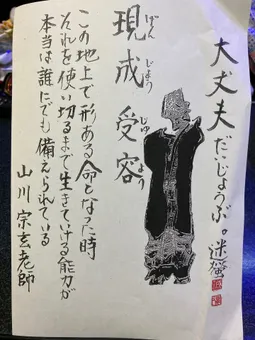 大丈夫だいじょうぶ。
現成受容
げん じょう じゅ よう
この地上で形ある命となった時
それを使い切るまで生きていける能力が
本当は誰にでも備えられている
山川宗玄老師